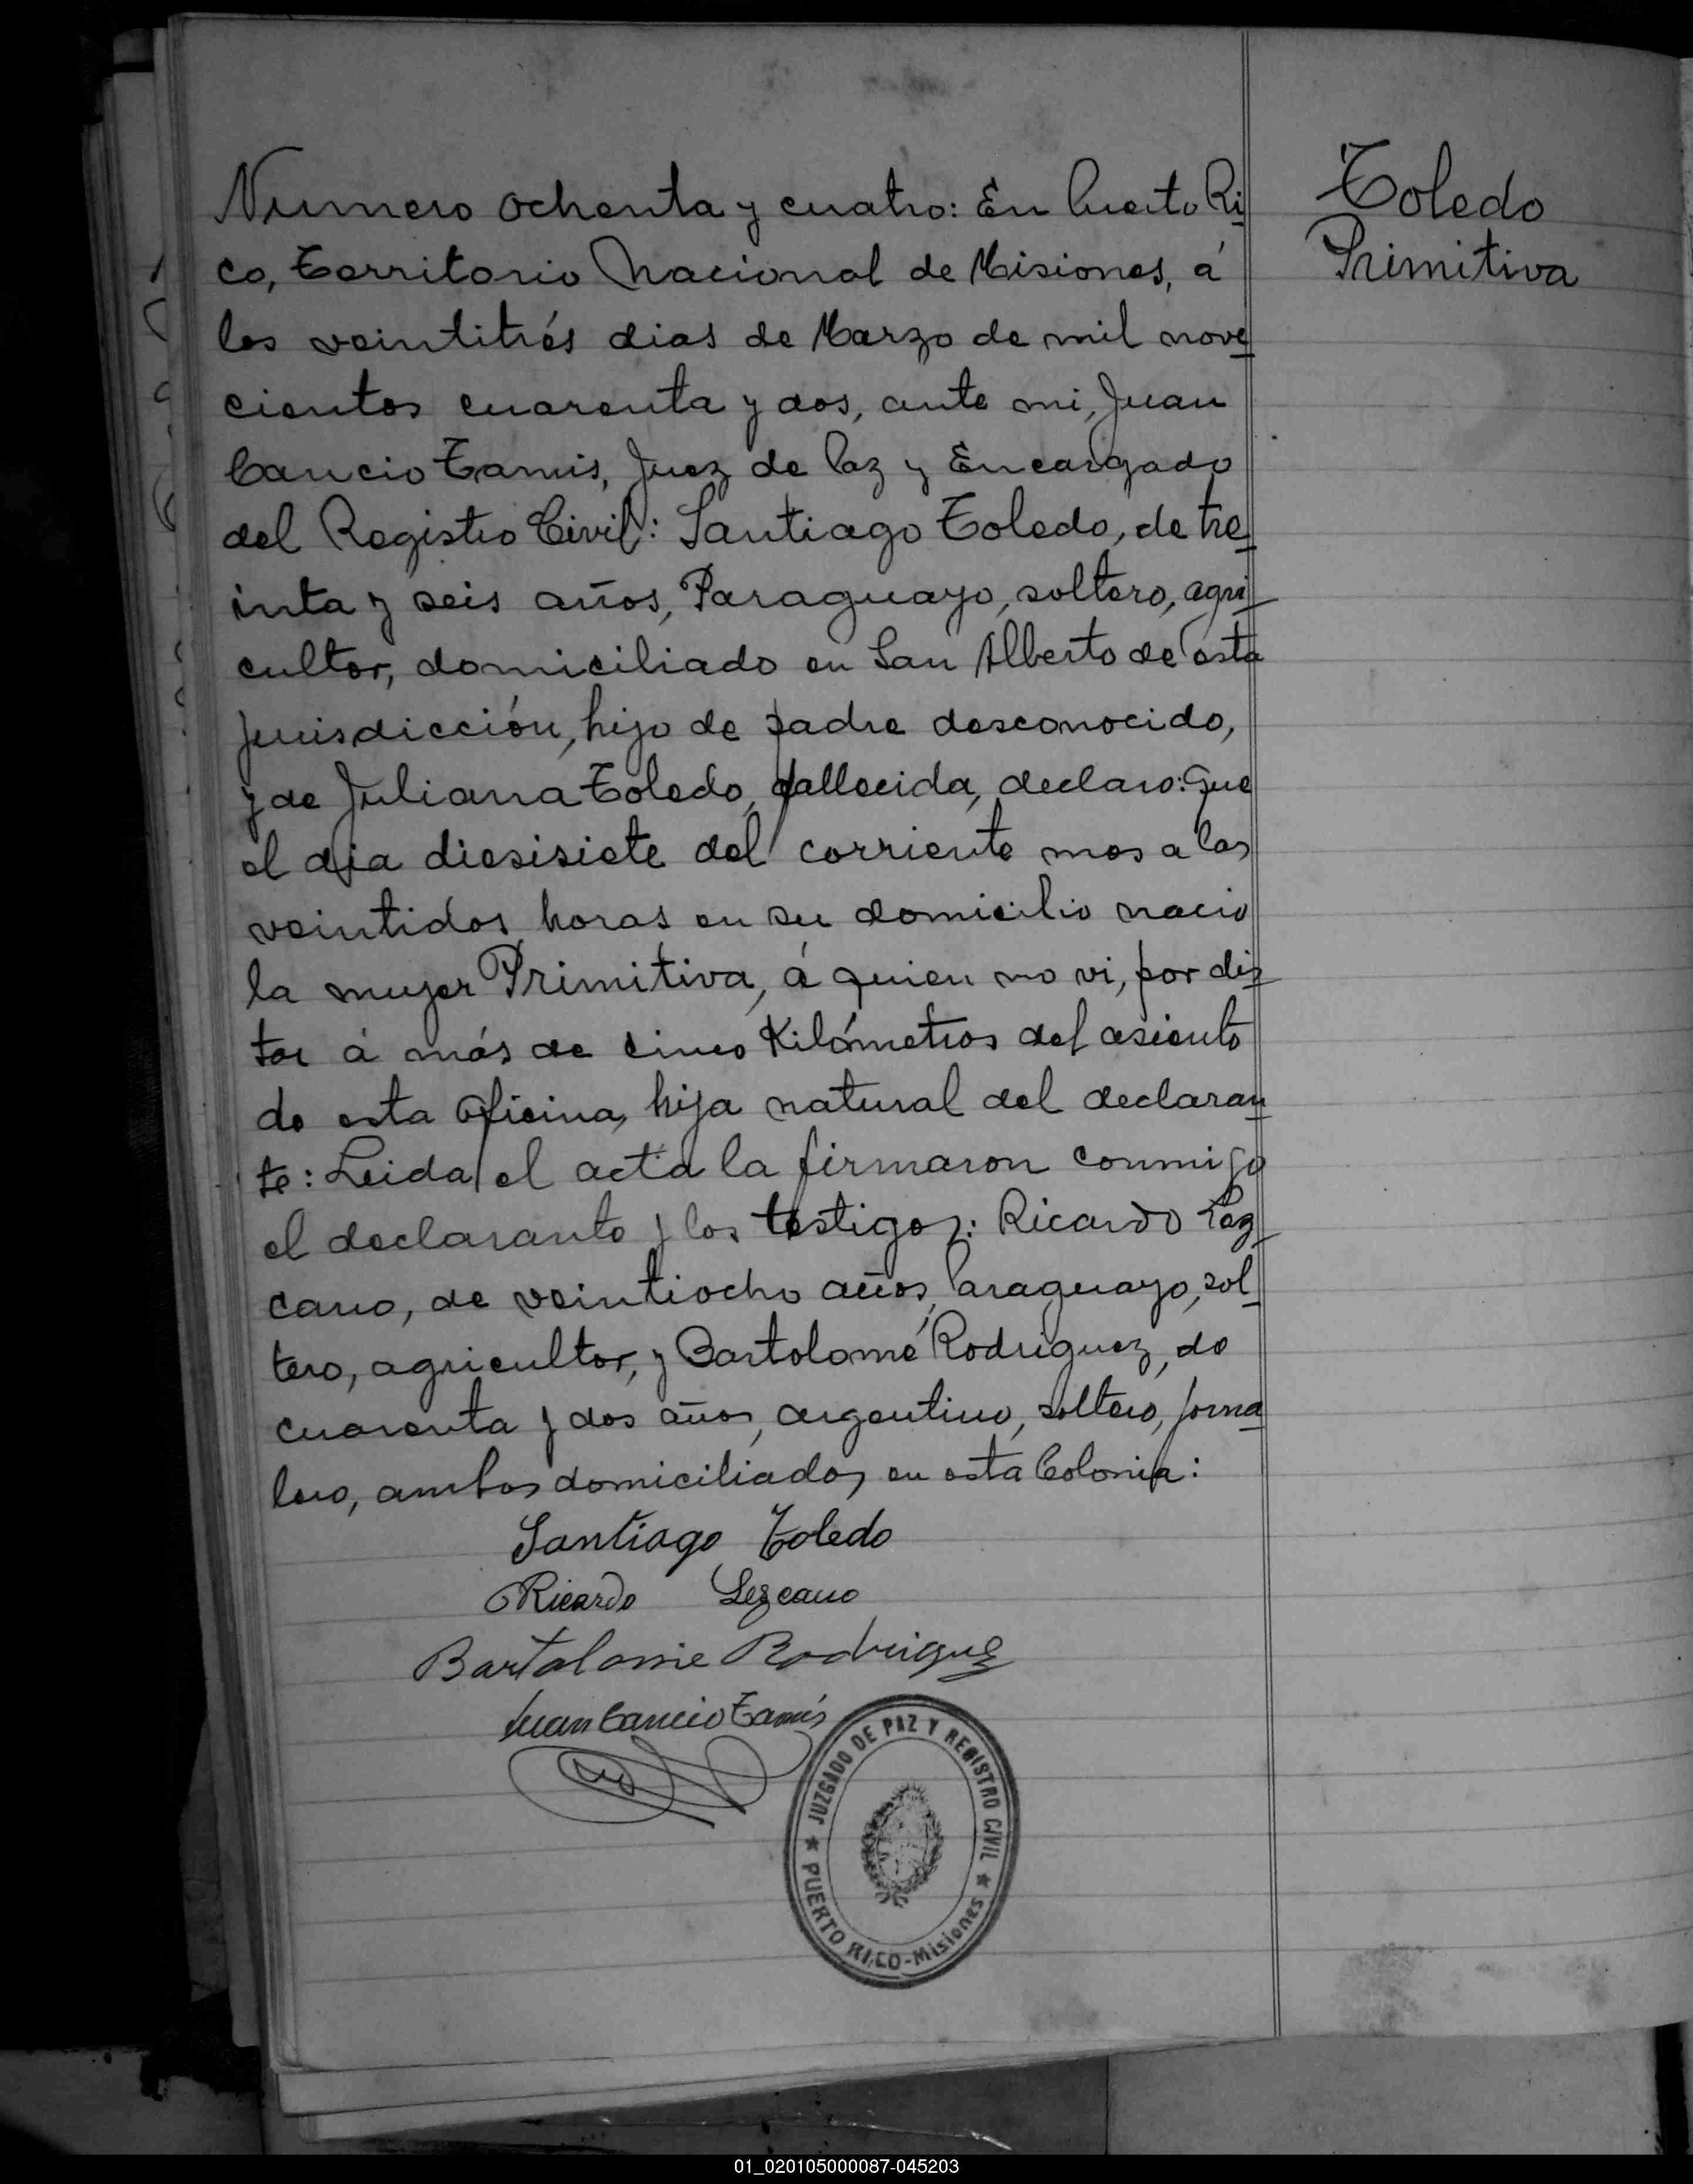 Numero ochenta y cuatro: En Puerto Ri
co, Territorio Nacional de Misiones, á
los veintitrés dias de Marzo de mil nove
cientos cuarenta y dos, ante mi, Juan
Cancio Tamis, Juez de Paz y Encargado
del Registro Civil: Santiago Toledo, de tre
inta y seis años, Paraguayo, soltero, agri
cultor, domiciliado en San Alberto de esta
jurisdicción, hijo de padre desconocido,
y de Juliana Toledo, fallecida, declaro: Que
el dia diesisiete del corriente mes a las
veintidos horas en su domicilio nacio
la mujer Primitiva, á quien no vi, por dis
tar á más de cinco Kilómetros del asiento
de esta oficina, hija natural del declaran
te: Leida el acta la firmaron conmigo
el declarante y los testigos: Ricardo Lez
cano, de veintiocho años, Paraguayo, sol
tero, agricultor, y Bartolomé Rodriguez, de
cuarenta y dos años, argentino, soltero, jorna
lero, ambos domiciliados en esta Colonia:
Santiago Toledo
Ricardo Lezcano
Bartolome Rodriguez
Juan Cancio Tamis
Toledo
Primitiva
JUZGADO DE PAZ Y REGISTRO CIVIL
PUERTO RICO-Misiones
01_020105000087-045203